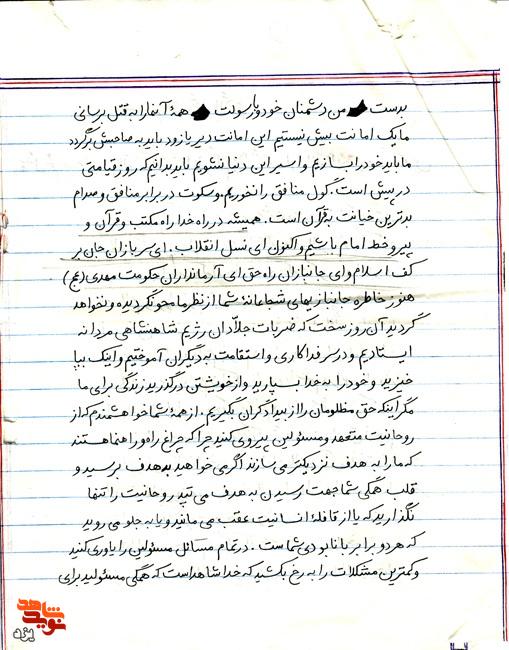 بدست من دشمنان خود و رسولت همهٔ آنها را به قتل برسانی
ما یک امانت بیش نیستیم این امانت دیر یا زود باید به صاحبش برگردد
ما باید خود را بسازیم و اسیر این دنیا نشویم باید بدانیم که روز قیامتی
در پیش است. گول منافق را نخوریم. و سکوت در برابر منافق و صدام
بدترین خیانت به قرآن است. همیشه در راه خدا راه مکتب و قرآن و
پیرو خط امام باشیم و اکنون ای نسل انقلاب. ای سربازان جان بر
کف اسلام و ای جانبازان راه حق ای آرمانداران حکومت مهدی (عج)
هنوز خاطره جانبازیهای شجاعانهٔ شما از نظر ما محو نگردیده و نخواهد
گردید آن روز سخت که ضربات جلّادان رژیم شاهنشاهی مردانه
ایستادیم و درس فداکاری و استقامت به دیگران آموختیم و اینک بپا
خیزید و خود را به خدا بسپارید و از خویشتن درگذرید زندگی برای ما
مگر اینکه حق مظلومان را از بیدادگران بگیریم. از همهٔ شما خواهشمندم که از
روحانیت متعهد و مسئولین پیروی کنید چرا که چراغ راه و راهنما هستند
که ما را به هدف نزدیکتر می سازند اگر می خواهید به هدف برسید و
قلب همگی شما جهت رسیدن به هدف می تپد روحانیت را تنها
نگذارید که یا از قافلهٔ انسانیت عقب می مانید و یا به جلو می روید
که هر دو برابر با نابودی شماست. در تمام مسائل مسئولین را یاوری کنید
و کمترین مشکلات را به رخ نکشید که خدا شاهد است که همگی مسئولید برای
نوید شاهد
یزد